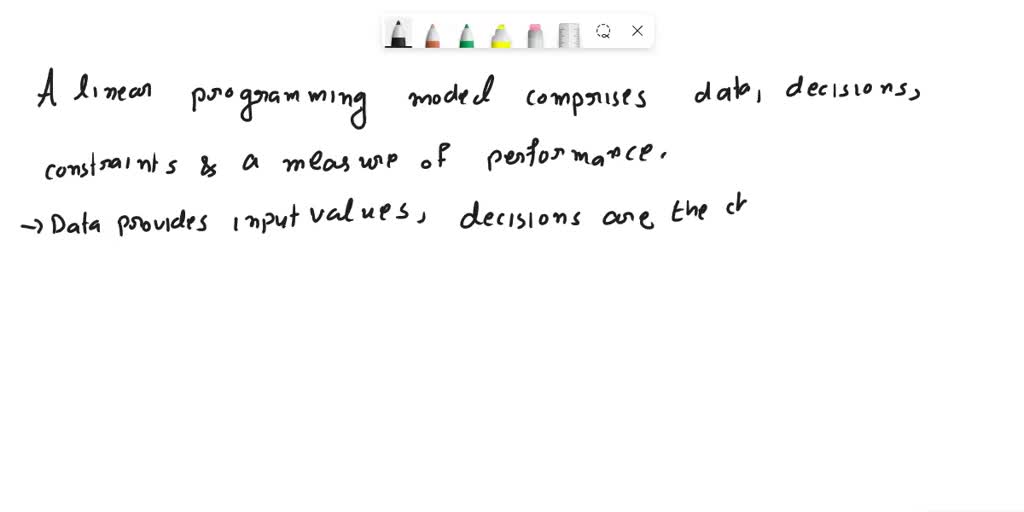 A linear programming model comprises data, decisions,
constraints & a measure of performance.
→ Data provides input values, decisions are the ch